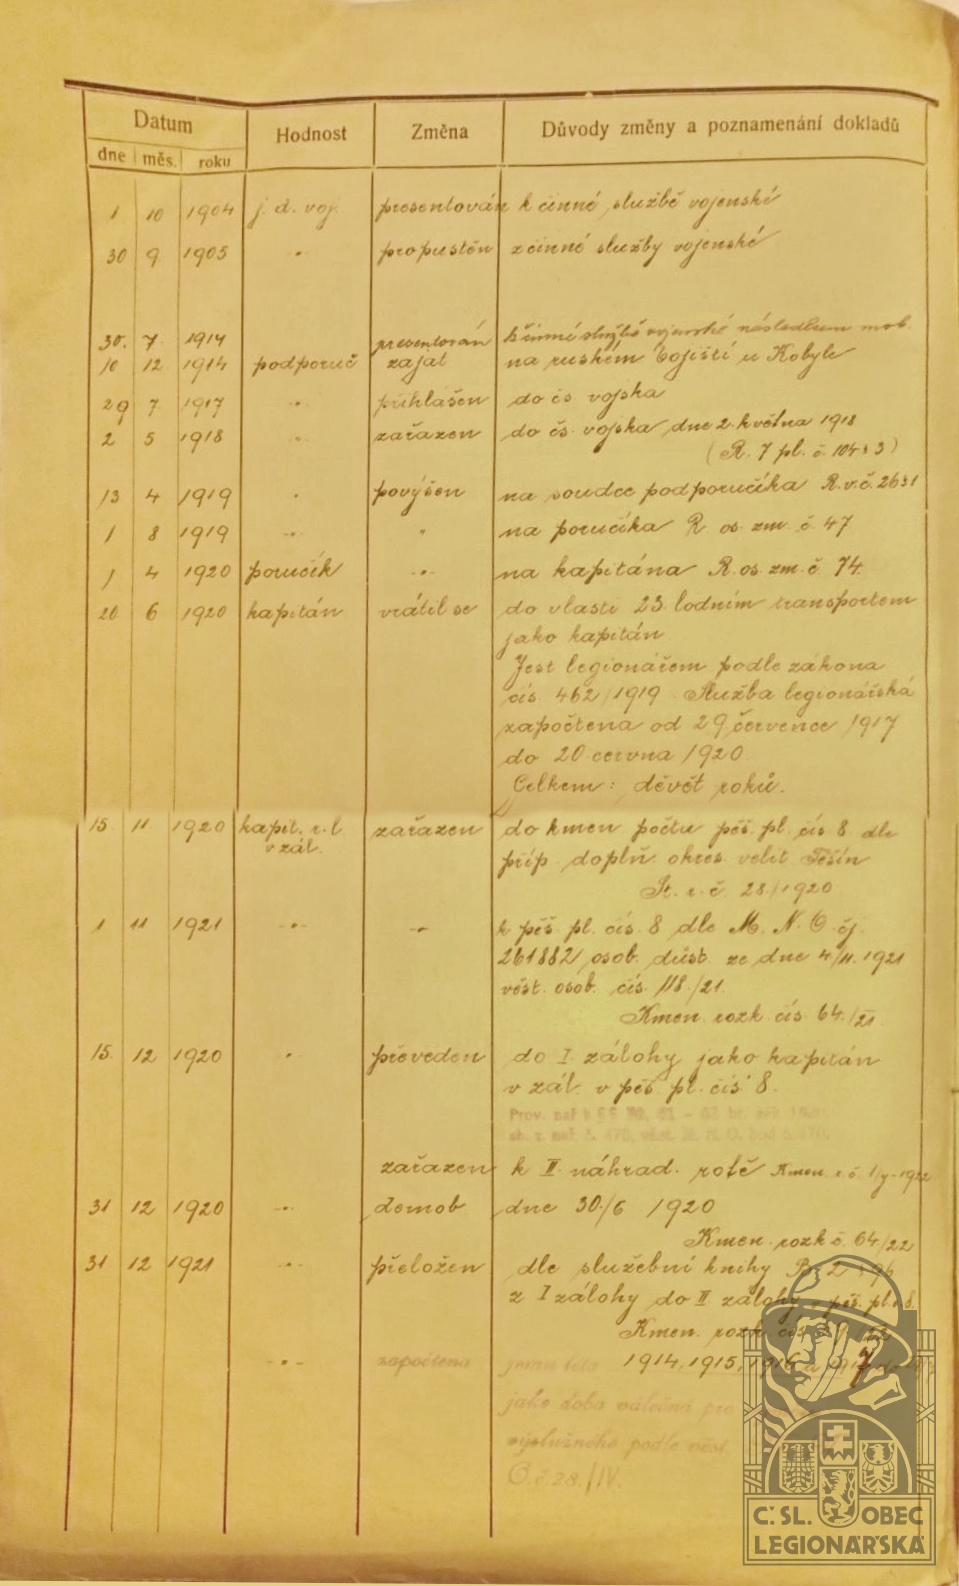 Datum Hodnost Změna Důvody změny a poznamenání dokladů
dne měs. roku
1 10 1904 j. d. voj. presentován k činné službě vojenské
30 9 1905 -"- propuštěn z činné služby vojenské
30. 7. 1914 presentován k činné službě vojenské následkem mob.
10 12 1914 podporuč zajat na ruském bojišti u Kobyle
29 7 1917 -"- přihlášen do čs. vojska
2 5 1918 -"- zařazen do čs. vojska dne 2. května 1918
(R. 7 pl. č. 104 § 3)
13 4 1919 " povýšen na soudce podporučíka R.v.č. 2631
1 8 1919 -"- " na poručíka R. os. zm. č. 47
1 4 1920 poručík -"- na kapitána R. os. zm. č. 74
20 6 1920 kapitán vrátil se do vlasti 23 lodním transportem
jako kapitán
Jest legionářem podle zákona
čís. 462/1919 Služba legionářská
započtena od 29 července 1917
do 20 června 1920
Celkem: devět roků.
15. 11 1920 kapit. r. l. zařazen do kmen počtu pěš. pl. čís 8 dle
v zál. příp. doplň okres. velit Těšín
St. r. č. 28/1920
1 11 1921 -"- -"- k pěš. pl. čís. 8 dle M. N. O. čj.
261882 osob. důst. ze dne 4/11. 1921
věst. osob. čís. 118./21.
Kmen. rozk čís 64./21
15. 12 1920 " převeden do I. zálohy jako kapitán
v zál. v pěš. pl. čís 8.
Prov. nař
sb. z. nař. č. 470, věst. M. N. O.
zařazen k II. náhrad. rotě Kmen. r. č.
31 12 1920 -"- demob dne 30./6 1920
Kmen. rozk č. 64/22
31 12 1921 -"- přeložen dle služební knihy
z I zálohy do II zálohy pěš. pl.
Kmen. rozk. čís
-"- započtena jemu léta 1914, 1915, 1916 a 1917
jako doba válečná pro
výslužného podle věst.
O. č. 28./IV.
Č.SL. OBEC
LEGIONÁŘSKÁ